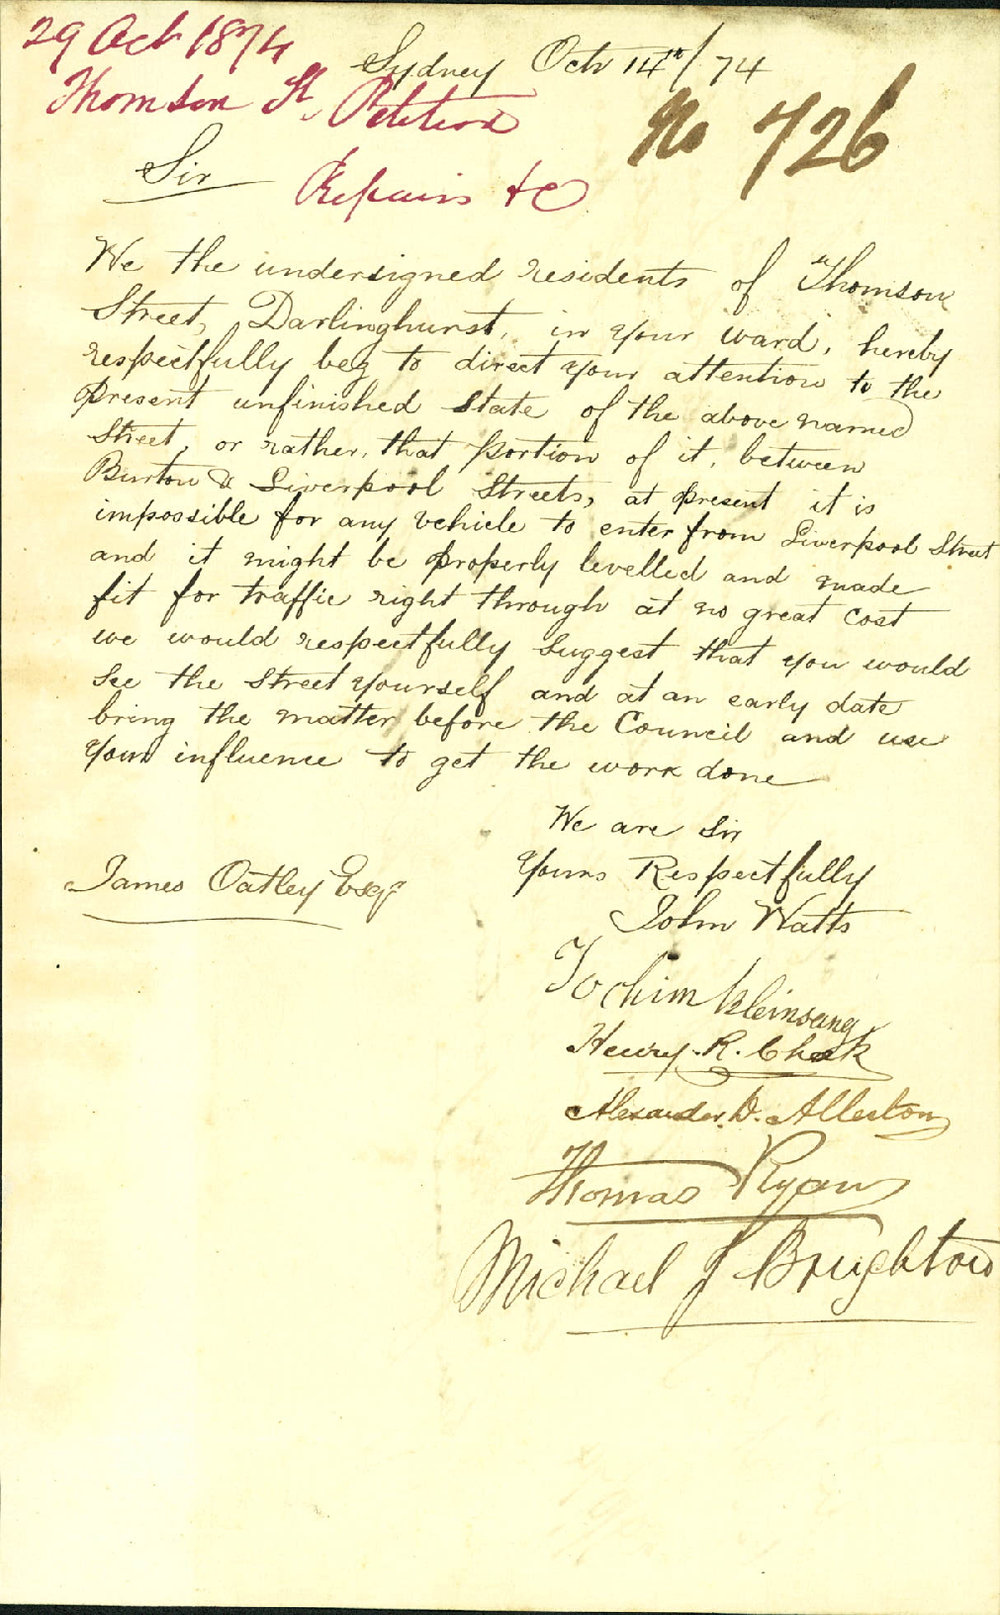 29 Oct 1874
Sydney Octr 14th/74
Thomson St. Petition
No 726
Sir
Repairs &c
We the undersigned residents of Thomson
Street, Darlinghurst, in your ward, hereby
respectfully beg to direct your attention to the
present unfinished state of the above named
Street, or rather, that portion of it, between
Burton & Liverpool Streets, at present it is
impossible for any vehicle to enter from Liverpool Street
and it might be properly levelled and made
fit for traffic right through at no great cost
we would respectfully suggest that you would
see the street yourself and at an early date
bring the matter before the Council and use
your influence to get the work done
We are Sir
Yours Respectfully
James Oatley Esqr
John Watts
Jochim Kleinsang
Henry R. Cheek
Alexander D. Allerton
Thomas Ryan
Michael J Broughton